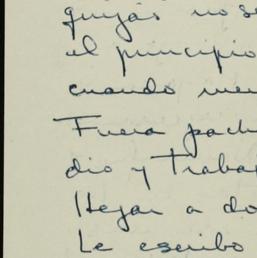 quizás no se
el principio
cuando me
Fuera pach
dio y Traba
llegar a do
Le escribo